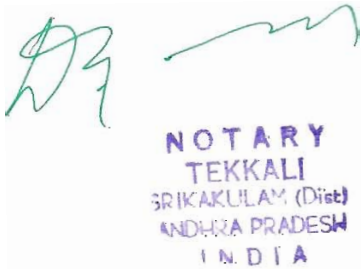 NOTARY
TEKKALI
SRIKAKULAM (Dist)
ANDHRA PRADESH
INDIA